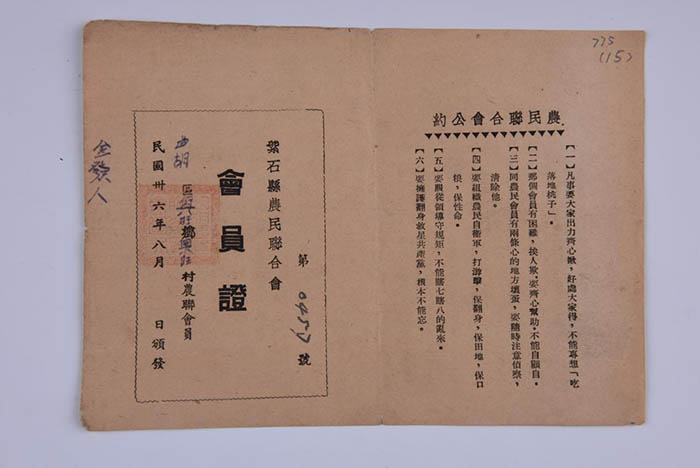 775
(15)
農民聯合會公約
【一】凡事要大家出力齊心,好處大家得,不能專想「吃
落地桃子」。
【二】那個會員有困難,挨人欺,要齊心幫助,不能自顧自。
【三】同農民會員有兩條心的地方壞蛋,要隨時注意偵察,
清除他。
【四】要組織農民自衛軍,打游擊,保翻身,保田地,保口
糧,保性命。
【五】要服從領導守規矩,不能瞎七瞎八的亂來。
【六】要擁護翻身救星共產黨,根本不能忘。
第0457號
紫石縣農民聯合會
會員證
胡區鄉村農聯會員
民國卅六年八月 日頒發
發人